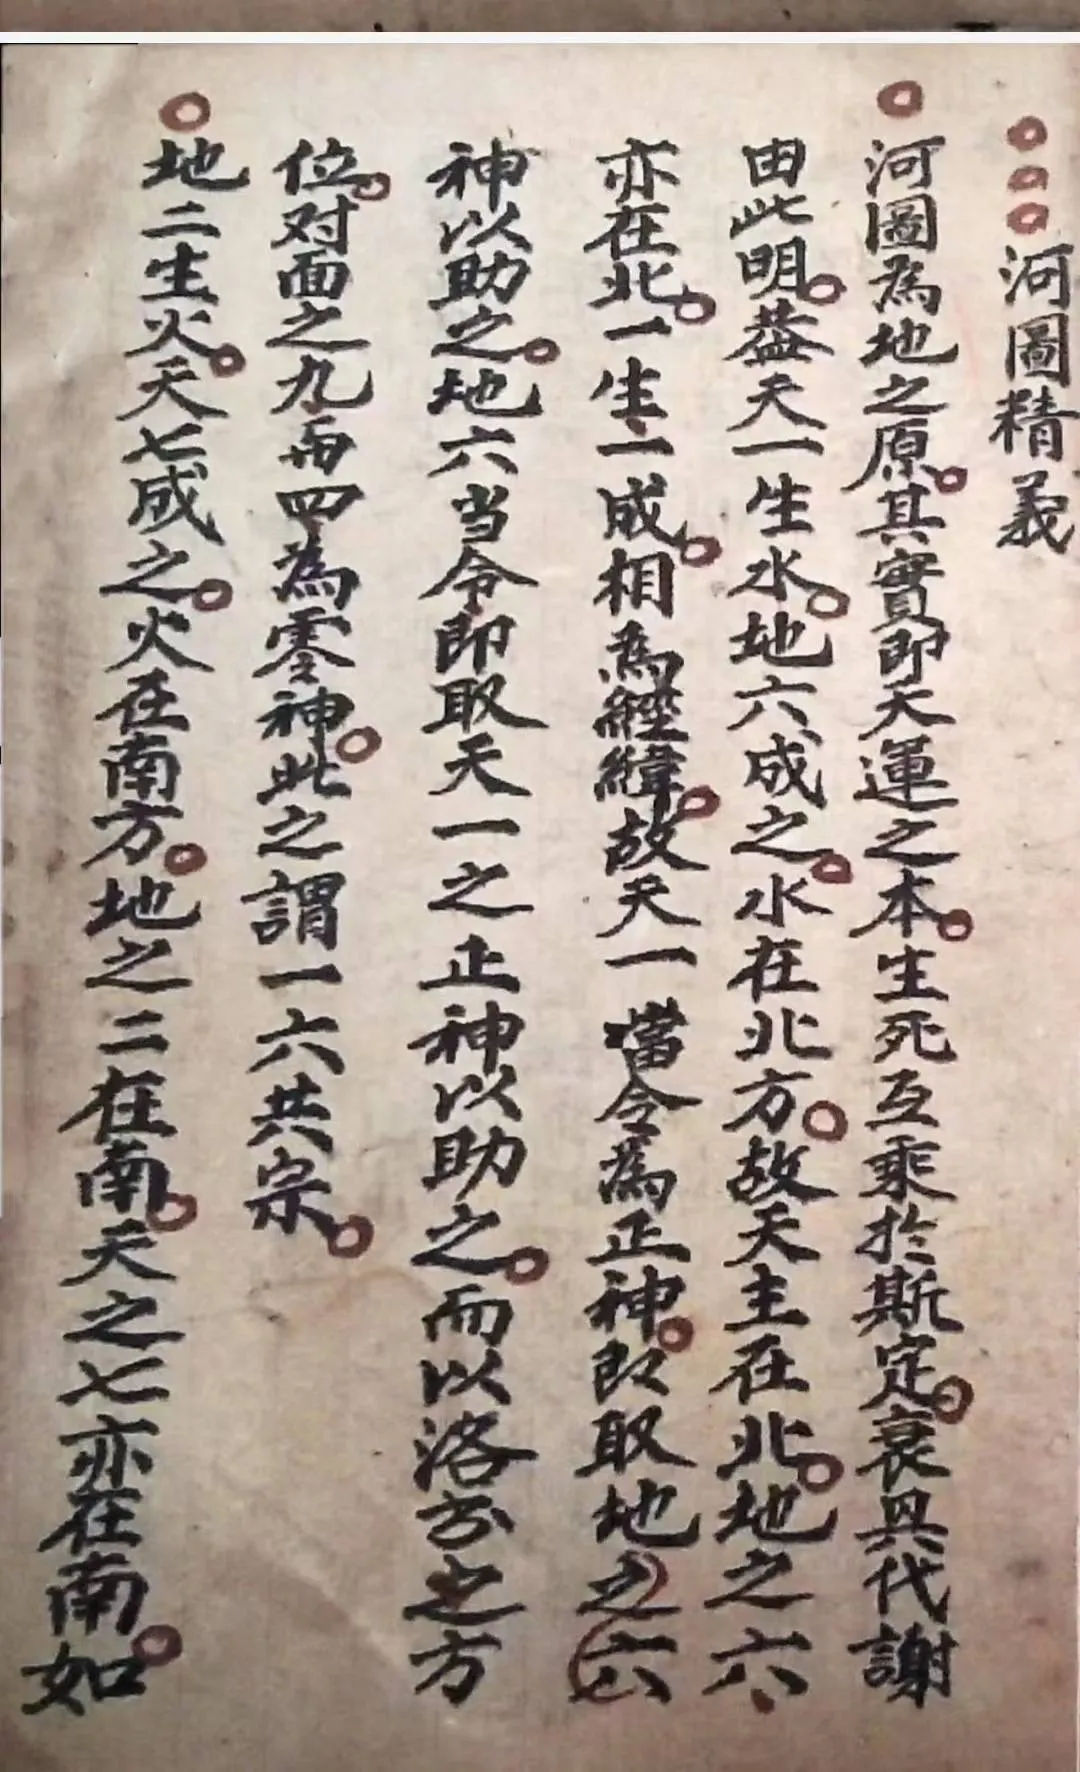 河圖精義
河圖為地之原。其實即天運之本。生死互乘於斯定。衰具代謝
由此明。蓋天一生水。地六成之。水在北方。故天主在北。地之六
亦在北。一生一成。相為經緯。故天一當令為正神。即取地之六
神以助之。地六当令即取天一之正神以助之。而以洛方之方
位。对面之九而四為零神。此之謂一六共宗。
地二生火。天七成之。火在南方。地之二在南。天之七亦在南。如